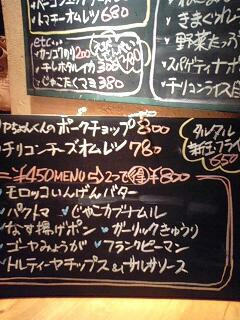 トマチーオムレツ 680
etc...
チレオタルイカ 380
じゃこたくマヨ 380
きまぐれオムレ
野菜たっぷ
スパゲティナポ
チリコンライス
アちゃんくんのポークチョップ 800
チリコンチーズオムレツ 780
タルタル
新玉フライ
650
¥450MENU 2つで得¥800
モロッコいんげんバター
パクトマ じゃこカブナムル
なす揚げポン ガーリックきゅうり
ゴーヤみょうが フランクピーマン
トルティーヤチップス&サルサソース